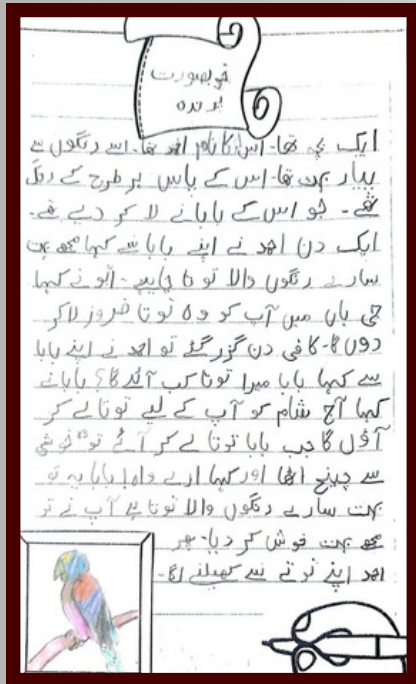 خوبصورت
پرندہ
ایک بچہ تھا۔ اس کا نام احمد تھا۔ اسے رنگوں سے
پیار بہت تھا۔ اس کے پاس ہر طرح کے رنگ
تھے۔ جو اس کے بابا نے لا کر دیے تھے۔
ایک دن احمد نے اپنے بابا سے کہا مجھے بہت
سارے رنگوں والا توتا چاہیے۔ ابو نے کہا
جی ہاں میں آپ کو وہ توتا ضروز لاکر
دوں گا۔ کافی دن گزر گئے تو احمد نے اپنے بابا
سے کہا بابا میرا توتا کب آئے گا؟ بابا نے
کہا آج شام کو آپ کے لیے توتا لے کر
آؤں گا جب بابا توتا لے کر آئے تو وہ خوشی
سے چینخ اٹھا اور کہا ارے واہ! بابا یہ تو
بہت سارے رنگوں والا توتا ہے آپ نے تو
مجھے بہت خوش کر دیا۔ پھر
احمد اپنے توتے سے کھیلنے لگا۔